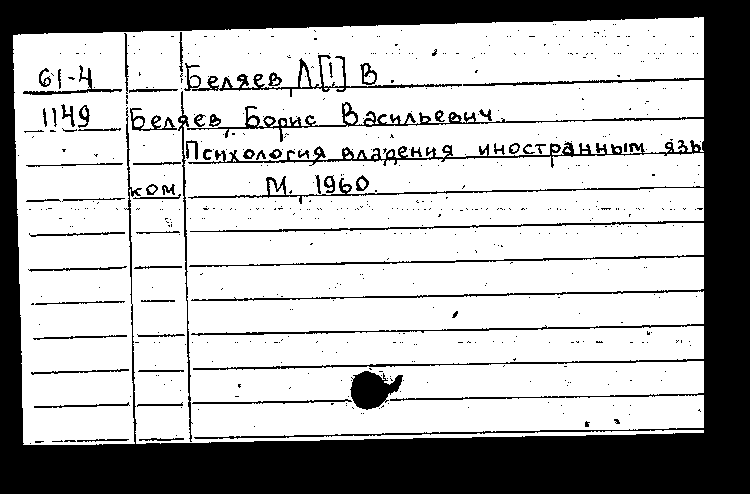 61-4 Беляев, Л.[!] В.
1149 Беляев, Борис Васильевич.
Психология владения иностранным язы
ком. М., 1960.